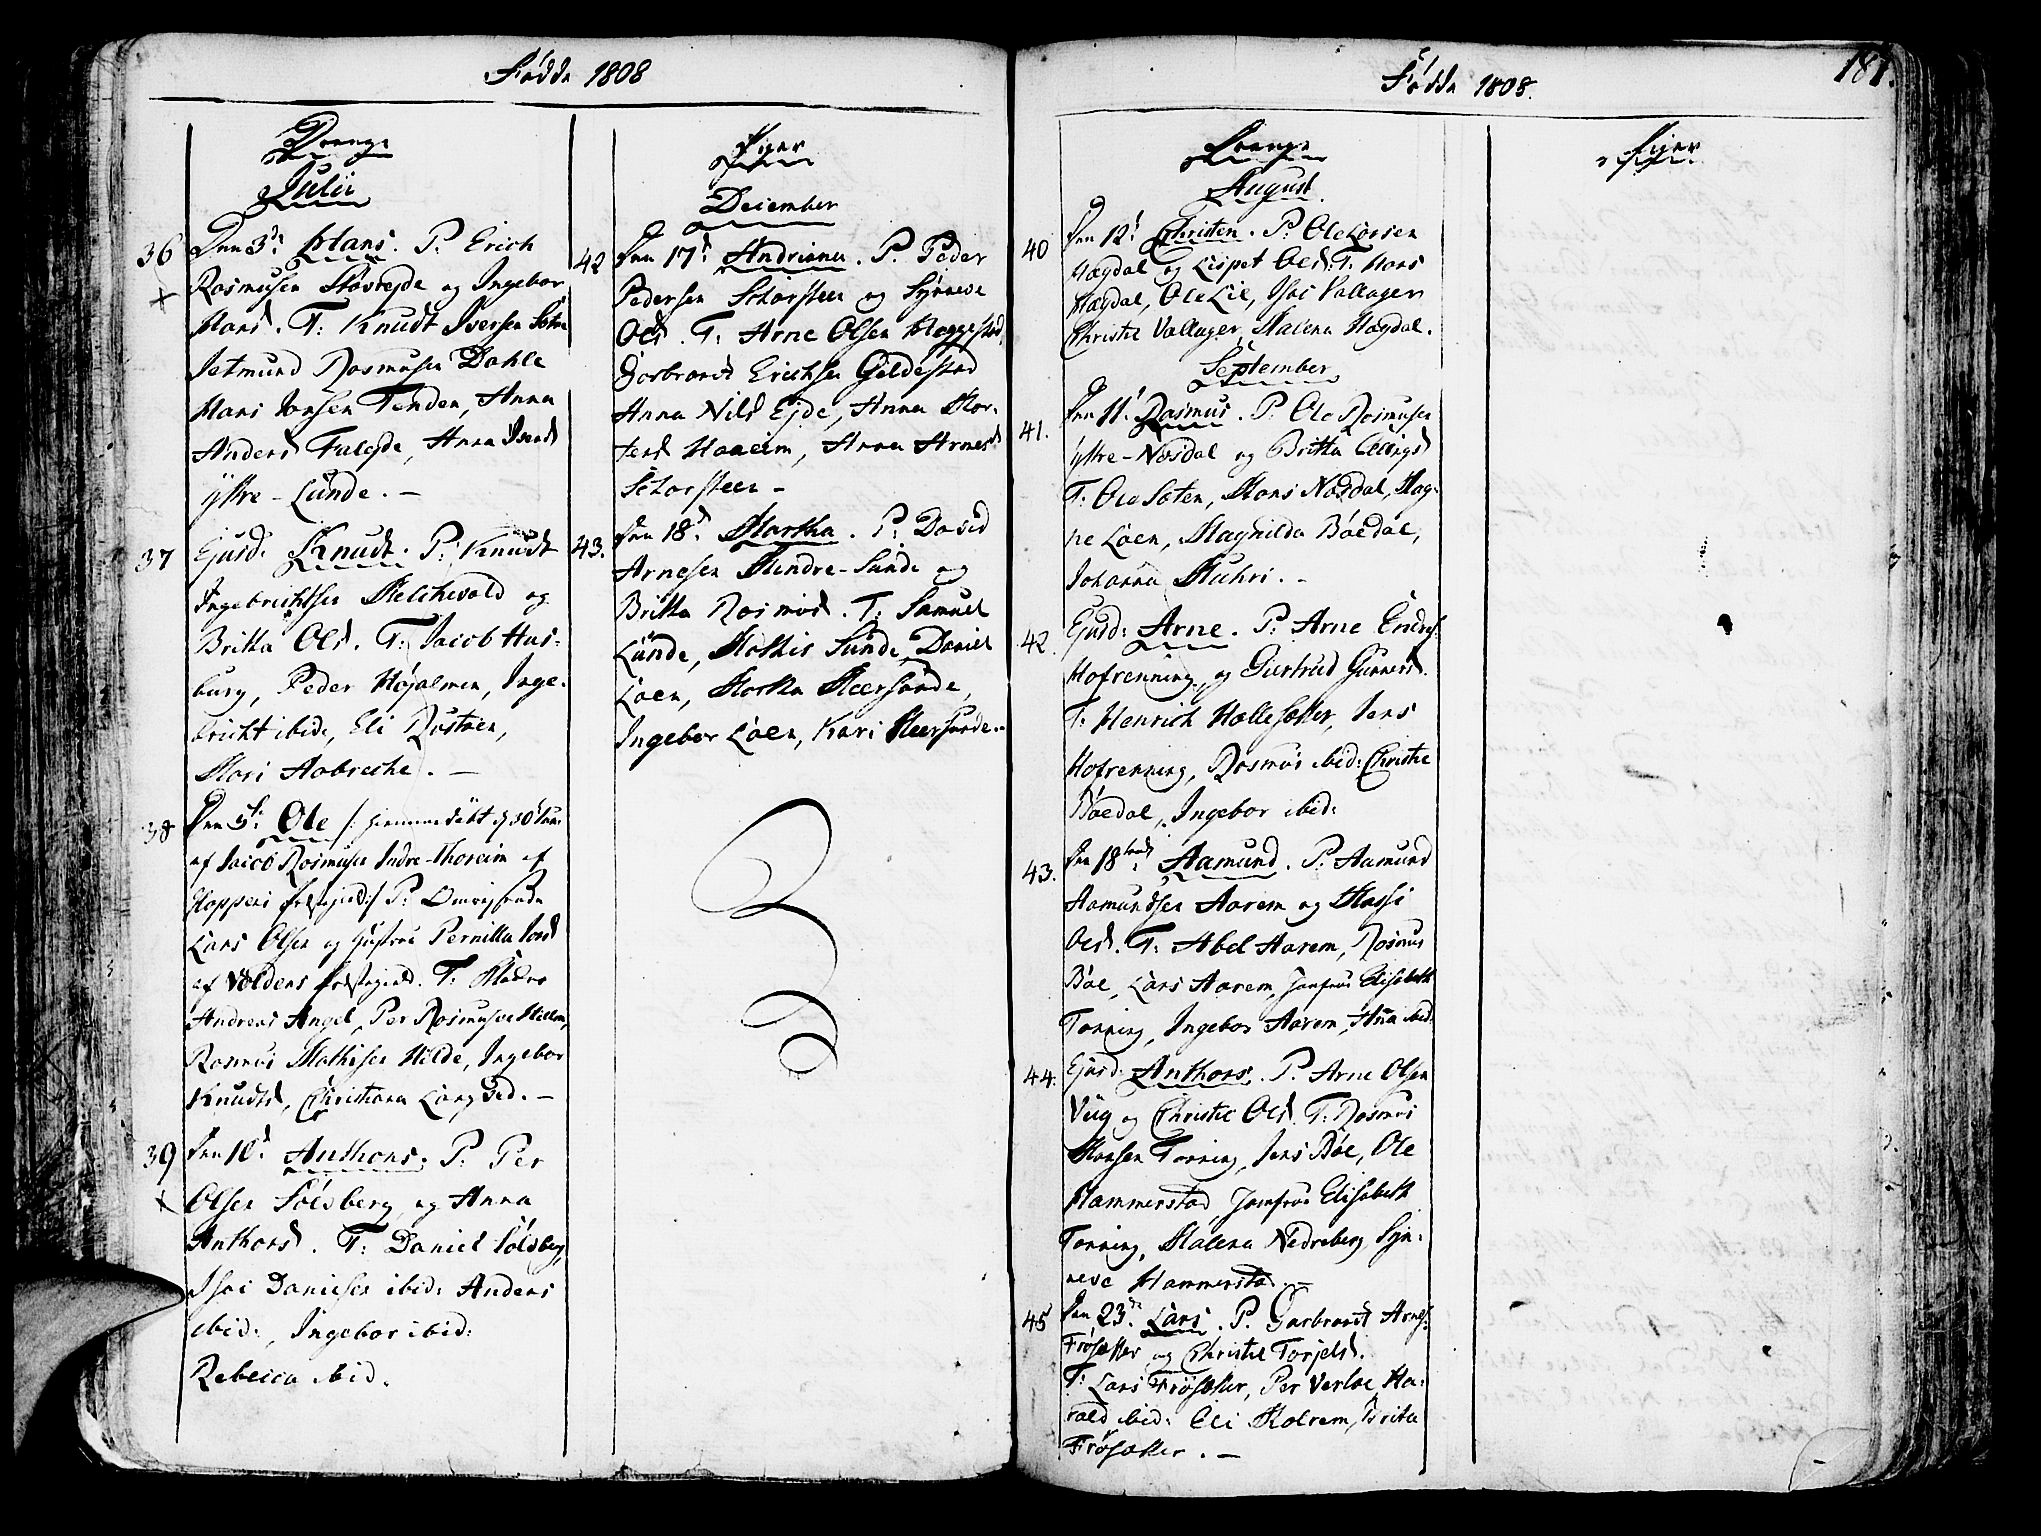 Fødde 1808
Drenge
Julii
36 Den 3d: Hans. P: Erich
Rasmusen og Ingebor
Hansd. T: Knudt Iversen
Jetmund Rasmusen Dahle
Hans Jonsen Tenden, Anna
Andersd Faleide, Anna Iversd
Yttre-Sunde. -
37 Ejusd: Knudt. P: Knudt
Ingebrichtsen Melchevold og
Britta Olsd. T: Jacob Hus-
burg, Peder Højalmen, Inge-
bricht ibid, Eli Rustøen,
Mari Aabreche. -
38 Den 5t: Ole /: hiemmedøbt d 30 Juni
af Jacob Rasmusen Indre-Thoreim af
Hoppens Præstegield :/ P:
Lars Olsen og Hustrue Pernilla
af Voldens Præstegield. T: Madme
Andreas Angel, Per Rasmusen
Rasmus Mathisen Hilde, Ingebor
Knudtsd, Christiana
39 Den 10d: Anthons. P: Per
Olsen Solsberg, og Anna
Anthonsd. T: Daniel Solsberg,
Isac Danielsen ibid: Anders
ibid:, Ingebor ibid:
Rebecca ibid.
Piger
December
42 Den 17d: Andriana. P. Peder
Pedersen Schorsteen og Synneve
Olsd. T. Arne Olsen Meggestad,
Garbrandt Erichsen Gieldestad
Anna Nilsd Ejde, Anna Mor-
tensd Haaeim, Anna Arnesd
Schorsteen -
43. Den 18d: Martha. P: David
Arnesen Mindre-Sunde og
Britta Rasmusd. T: Samuel
Sunde, Mathis Sunde, Daniel
Loen, Martha Meersunde,
Ingebor Loen, Kari Meersunde.-
Fødde 1808.
181.
Drenge
August.
40 Den 12t: Christen. P: Ole Larsen
Hægdal og Lispet Olsd. T: Hans
Hægdal, Ole Lie, Isac Vallager
Christi Vallager, Malena Hægdal.
September
41. Den 11t: Rasmus. P: Ole Rasmusen
Yttre-Nosdal og Britta Ellingsd
T: Ole Sæten, Mons Nosdal, Mag-
ne Loen, Magnilda Bøedal,
Johanna Muhri. -
42. Ejusd: Arne. P: Arne
Hofrenning, og Giertrud Gunnersd.
T: Henrich Hallesætter, Jens
Hofrenning, Rasmus ibid: Christi
Bøedal, Ingebor ibid:
43. Den 18tend: Aamund. P: Aamund
Aamundsen Aarem og Massi
Olsd. T: Abel Aarem, Rasmus
Bøe, Lars Aarem, Jomfrue Elisabeth
Tonning, Ingebor Aarem, Ana ibid:
44. Ejusd: Anthons. P. Arne Olsen
Viig og Christi Olsd. T: Rasmus
Monsen Tonning, Jens Bøe, Ole
Hammerstad, Jomfrue Elisabeth
Tonning, Malena Nedreberg, Syn-
neve Hammerstad. -
45 Den 23d: Lars. P. Garbrandt Arnes:
Frøsætter og Christi Torjelsd.
T: Lars Frøsætter, Per Verlae, Ha-
rald ibid: Eli Molrem, Brita
Frøsætter. -
Piger